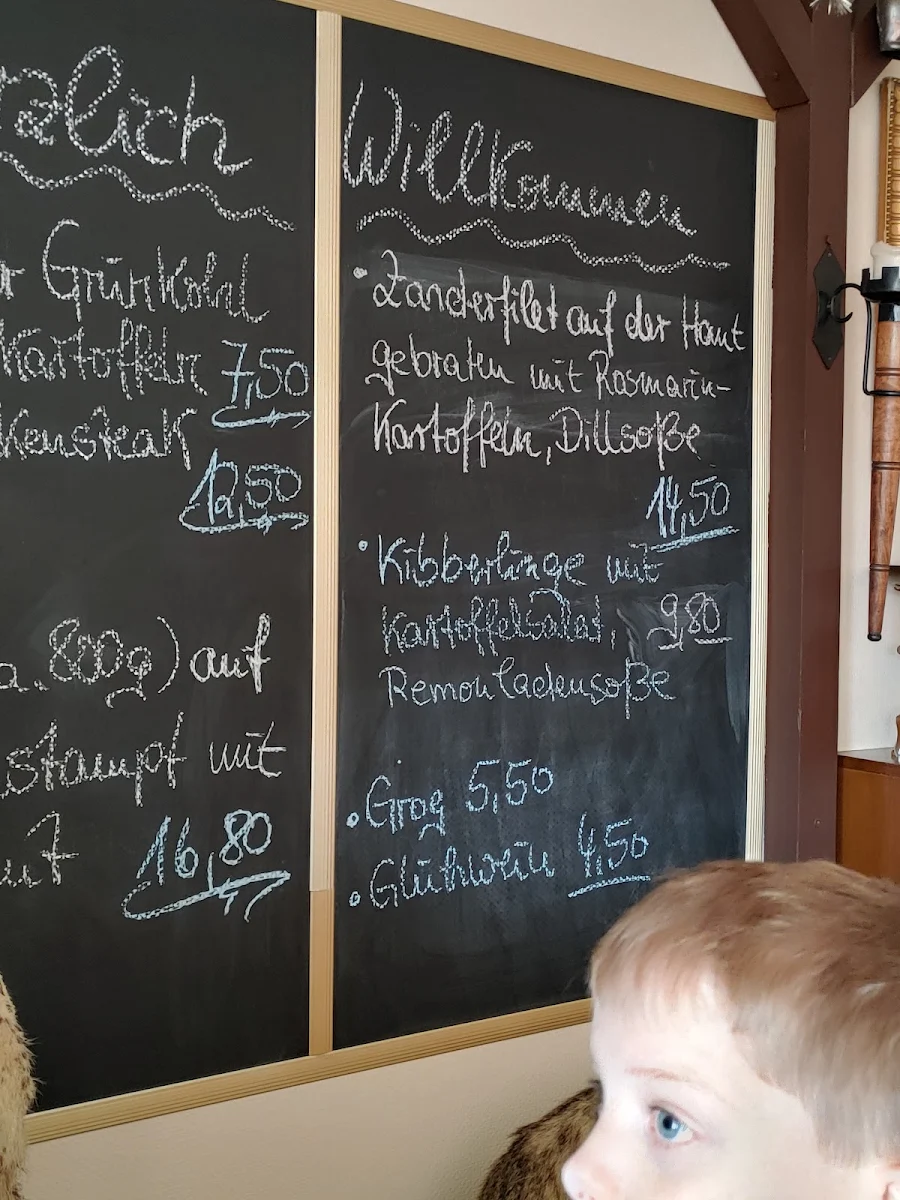 zlich
Grünkohl
Kartoffeln 7,50
kensteak
12,50
a. 800g) auf
stampf mit
16,80
Willkommen
• Zanderfilet auf der Haut
gebraten mit Rosmarin-
Kartoffeln, Dillsoße
14,50
• Kibberlinge mit
Kartoffelsalat, 9,80
Remouladensoße
• Grog 5,50
• Glühwein 4,50